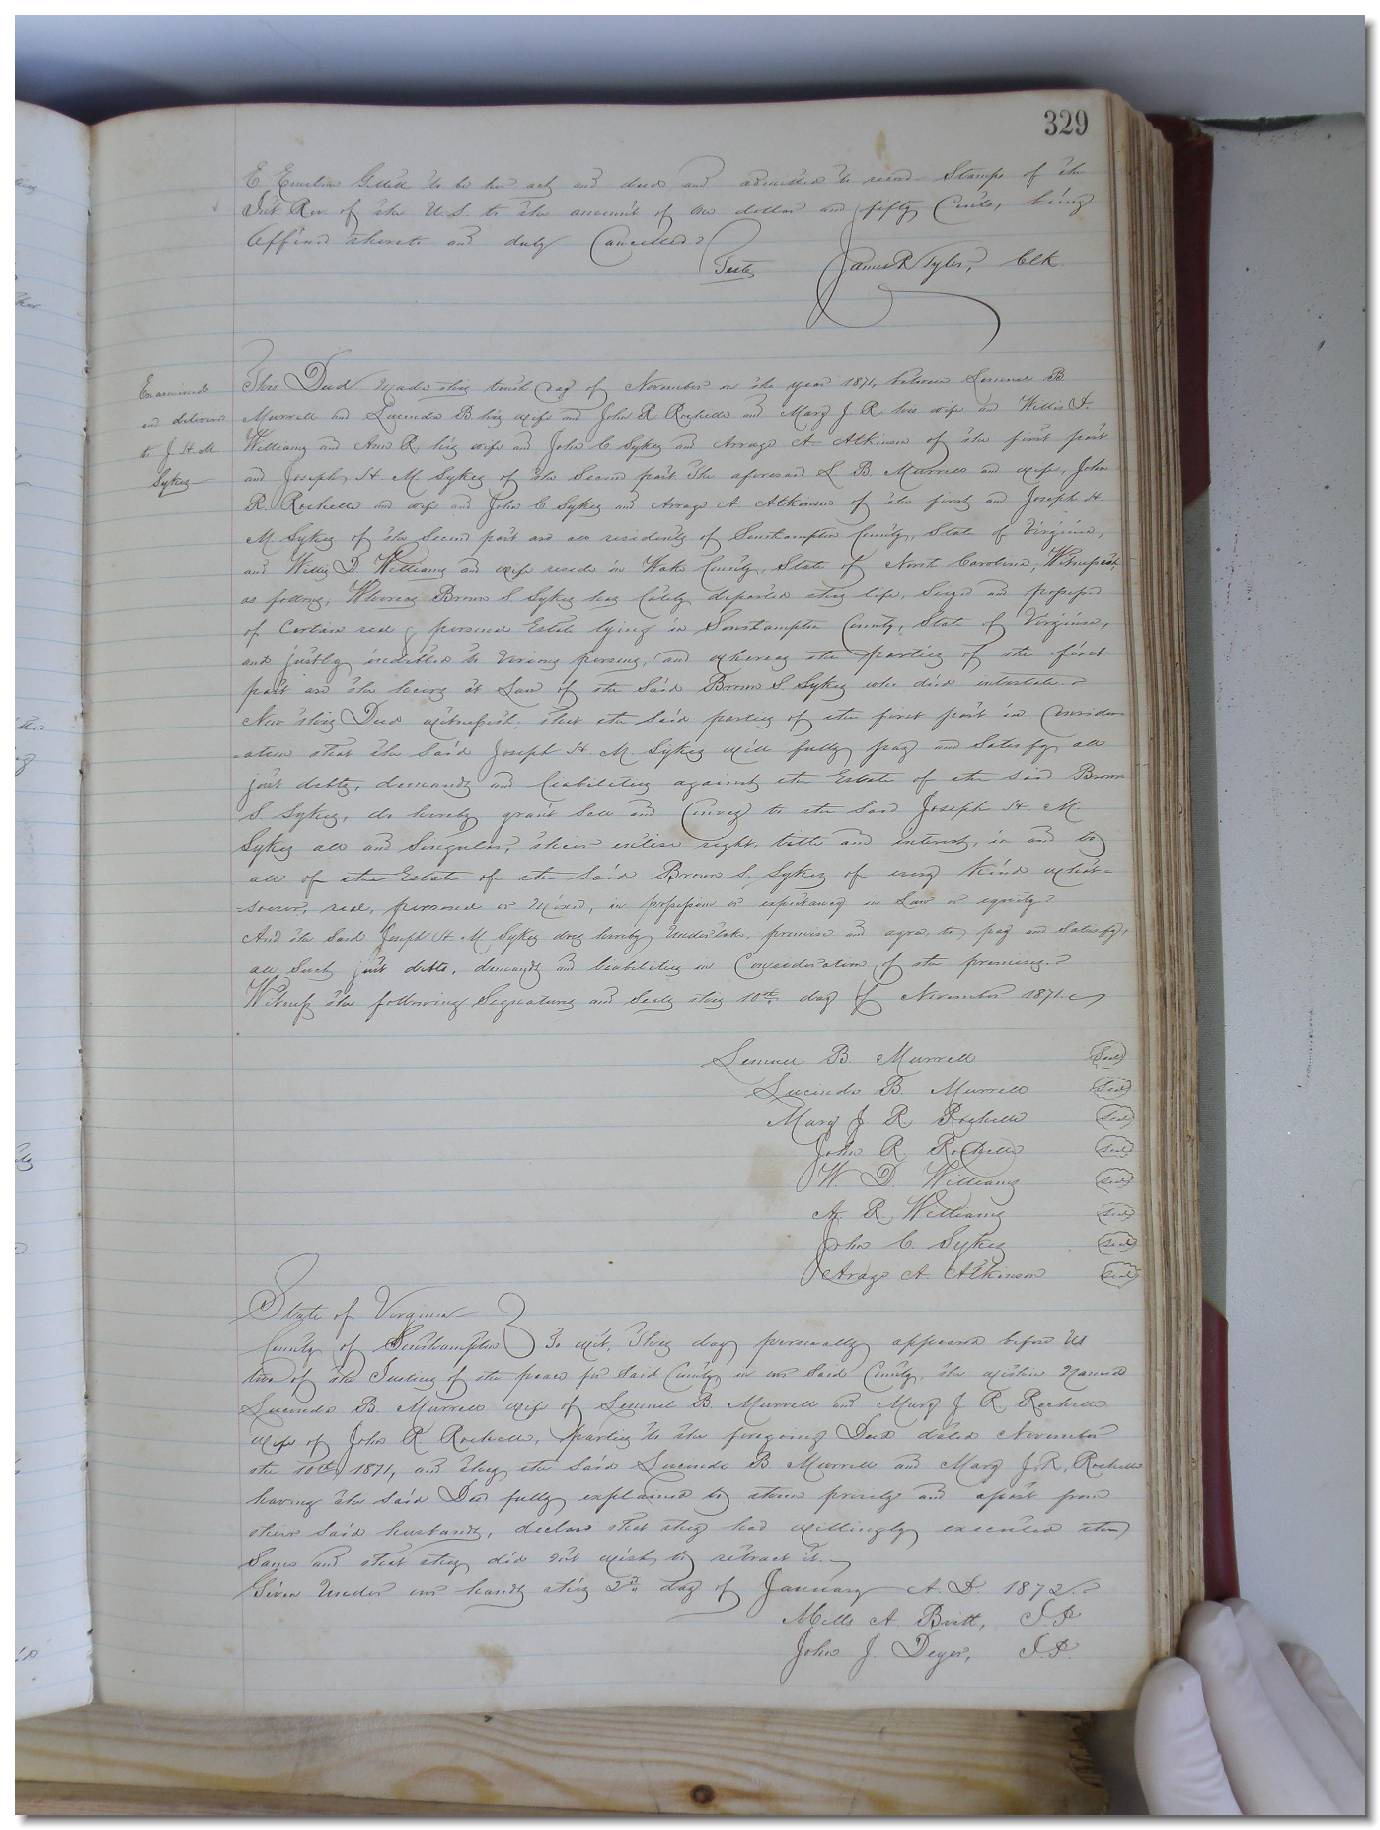 329
E. Emeline Gillett to be her act and deed and admitted to record Stamps of the
Int Rev. of the U.S. to the amount of one dollar and fifty Cents, being
affixed thereto and duly Cancelled
Teste James R Tyler, Clk
Examined
and delivered
to J. H. M
Sykes
This Deed made this tenth day of November in the year 1871, between Lemuel B
Murrell and Lucinda B his wife and John R Rochelle and Mary J R. his wife and Willis D.
Williams and Ann R. his wife and John C Sykes and Arrage A. Atkinson of the first part
and Joseph H. M Sykes of the Second part The aforesaid L B Murrell and wife, John
R. Rochelle and wife and John C Sykes and Arrage A Atkinson of the first, and Joseph H
M Sykes of the Second part are all residents of Southampton County, State of Virginia,
and Willis D. Williams and wife reside in Wake County, State of North Carolina, Witnesseth
as follows, Whereas Brown S. Sykes has lately departed this life, Seized and possessed
of Certain real & personal Estate lying in Southampton County, State of Virginia,
and justly indebted to various persons, and whereas the parties of the first
part are the heirs at Law of the Said Brown S. Sykes who died intestate
Now this Deed witnesseth, that the Said parties of the first part in Consider
-ation that the Said Joseph H. M. Sykes will fully pay and Satisfy all
just debts, demands and liabilities against the Estate of the Said Brown
S. Sykes, do hereby grant Sell and Convey to the Said Joseph H. M.
Sykes all and Singular, their entire right, title and interest, in and to
all of the Estate of the Said Brown S. Sykes of every Kind what=
=soever, real, personal or Mixed, in possession or expectancy in Law or equity
And the Said Joseph H. M. Sykes does hereby Undertake, promise and agree, to pay and Satisfy,
all Such just debts, demands and liabilities in Consideration of the premises.
Witness the following Signatures and Seals this 10th day of November 1871.
Lemuel B. Murrell Seal
Lucinda B. Murrell Seal
Mary J R Rochelle Seal
John R. Rochelle Seal
W. D. Williams Seal
A. R. Williams Seal
John C. Sykes Seal
Arage A. Atkinson Seal
State of Virginia
County of Southampton To wit, This day personally appeared before us
two of the Justices of the peace for Said County in our Said County, the within Named
Lucinda B. Murrell wife of Lemuel B. Murrell and Mary J R Rochelle
wife of John R Rochelle, parties to the foregoing Deed dated November
the 10th 1871, and they the Said Lucinda B. Murrell and Mary J. R. Rochelle
having the Said Deed fully explained to them privily and apart from
their Said husbands, declare that they had willingly executed the
Same and that they did not wish to retract it.
Given Under our hands this 2nd day of January A. D. 1872
Mills A Britt, J P
John J. Deyer, J. P.